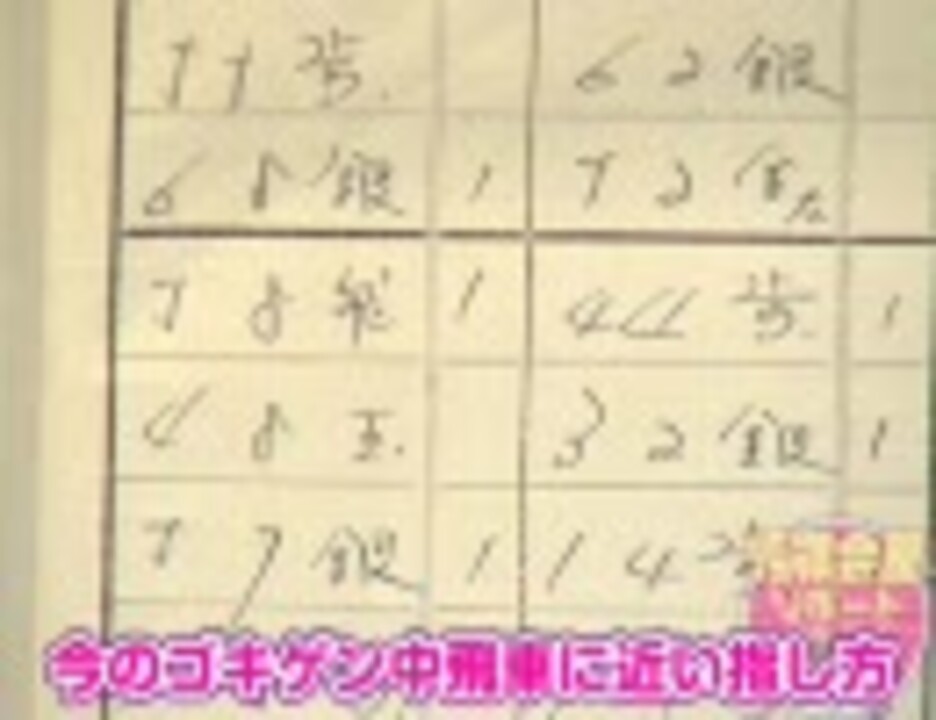 77歩 62銀
68銀 1 72金左
78飛 1 44歩 1
48玉 32銀 1
77銀 1 14歩
今のゴキゲン中飛車に近い指し方